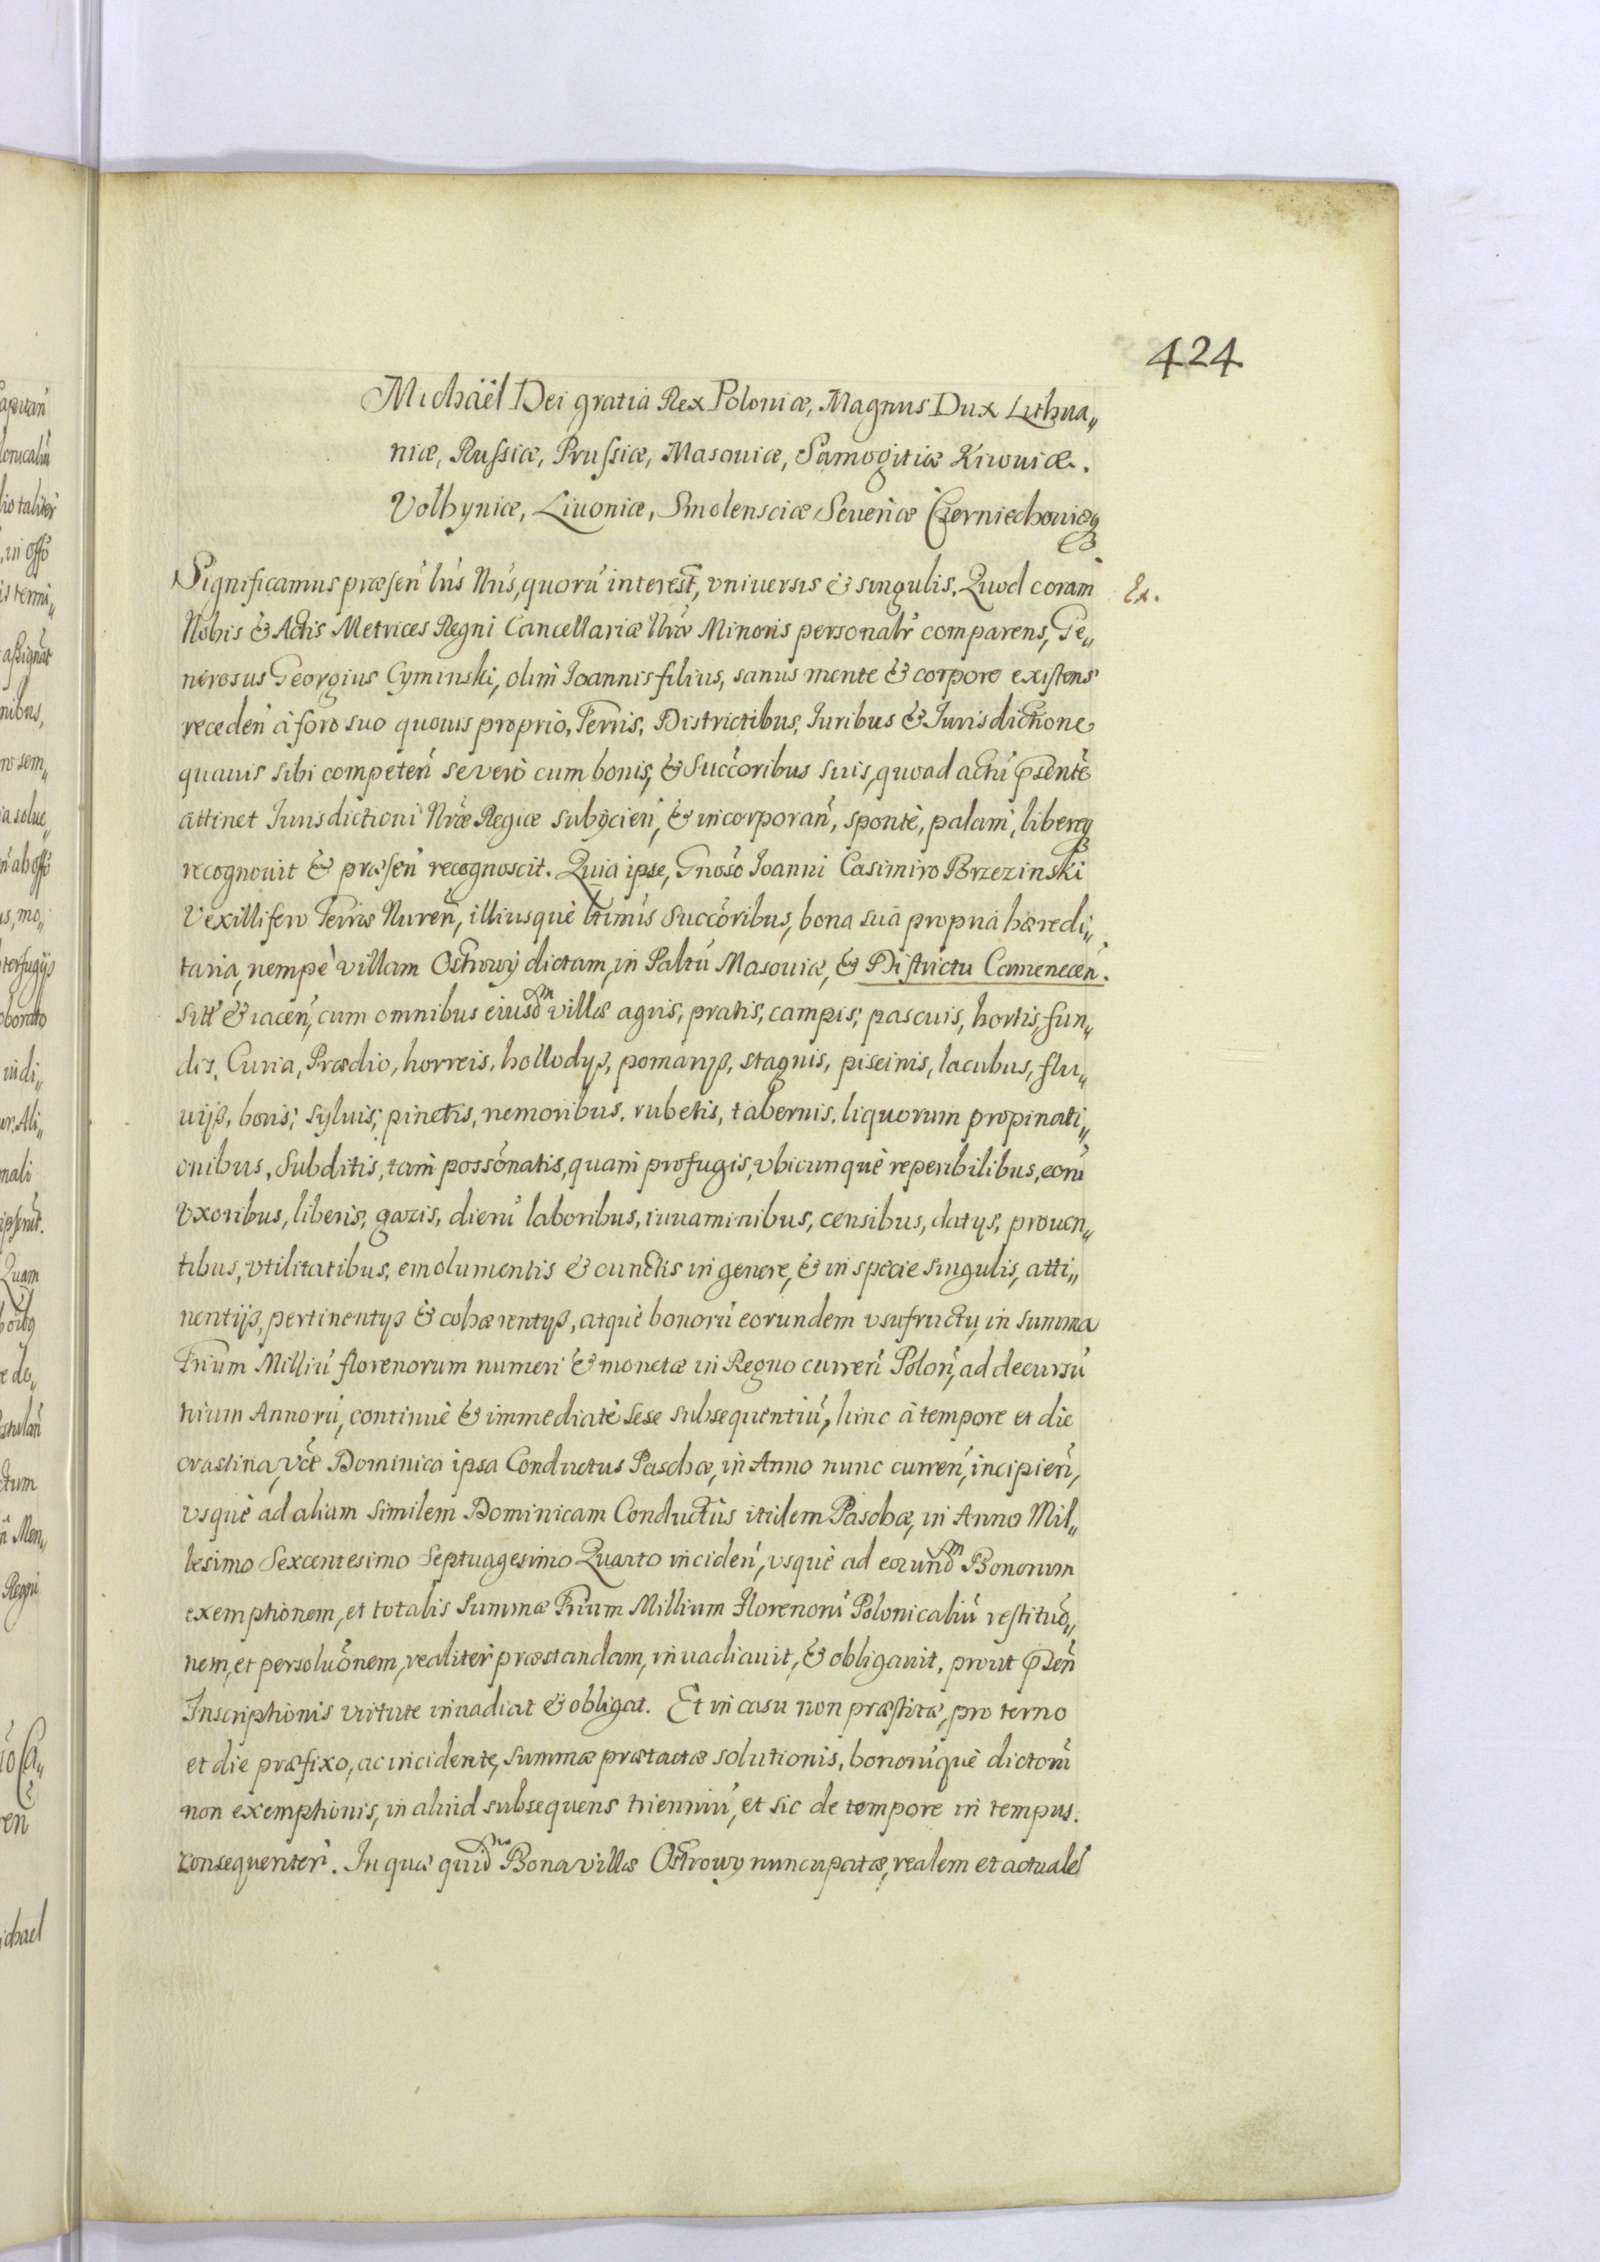 424
Michaël Dei gratia Rex Poloniæ, Magnus Dux Lithua„
niæ, Russiæ, Prussiæ, Masouiæ, Samogitiæ Kiiouiæ.
Volhyniæ, Liuoniæ, Smolensciæ Seueriæ Czerniechouiæq
Significamus præsen̄ lr̄is Nr̄is, quorū interest, vniuersis & singulis. Quod coram
Ex.
Nobis & Actis Metrices Regni Cancellariæ Nr̄æ Minoris personalr̄ comparens, Ge„
nerosus Georgius Cyminski, olim Ioannis filius, sanus mente & corpore existens
receden̄ à foro suo quouis proprio, Terris, Districtibus, Iuribus & Iurisdictione
quauis sibi competen̄ severò cum bonis, & Succ̄oribus suis, quoad actū p̄sentē
attinet Iurisdictioni Nr̄æ Regiæ subijcien̄, & incorporan̄, sponte, palam, libereq
recognouit & præsen̄ recognoscit. Quia ipse, Gnōso Ioanni Casimiro Brzezinski
Vexillifero Terræ Nuren̄, illiusquè ltimis Succ̄oribus, bona sua propria hæredi„
taria, nempè villam Ostrowy dictam, in Paltū Masouiæ, & Districtu Camenecen̄.
sitt̄ & iacen̄, cum omnibus eiusdm villæ agris, pratis, campis, pascuis, hortis, fun„
dis, Curia, Prædio, horreis, hollodijs, pomarijs, stagnis, piscinis, lacubus, flu„
uijs, boris, syluis, pinetis, nemoribus, rubetis, tabernis, liquorum propinati„
onibus, Subditis, tam possōnatis, quam profugis, vbicunquè reperibilibus, eorū
vxoribus, liberis, gazis, dierū laboribus, iuuaminibus, censibus, datijs, prouen„
tibus, vtilitatibus, emolumentis & cunctis in genere, & in specie singulis, atti„
nentijs, pertinentijs & cohærentijs, atquè bonorū eorundem vsufructu, in summa
Trium Milliū florenorum numeri & monetæ in Regno curren̄ Polon̄, ad decursū
trium Annorū, continuè & immediatè sese subsequentiū, hinc à tempore et die
crastina, vc̄t Dominica ipsa Conductus Paschæ, in Anno nunc curren̄, incipien̄,
vsquè ad aliam similem Dominicam Conductūs itidem Paschæ, in Anno Mil„
lesimo Sexcentesimo Septuagesimo Quarto inciden̄, vsquè ad eorundm Bonorum
exemptionem, et totalis Summæ Trium Millium Florenorū Polonicaliū restituō„
nem, et persoluōnem, realiter præstandam, inuadiauit, & obligauit, prout p̄sen̄
Inscriptionis virtute inuadiat & obligat. Et in casu non præstitæ, pro termo
et die præfixo, ac incidente, summæ prætactæ solutionis, bonorūquè dictorū
non exemptionis, in aliud subsequens trienniū, et sic de tempore in tempus.
consequenter. In quæ quid Bona villæ Ostrowy nuncupatæ, realem et actualē